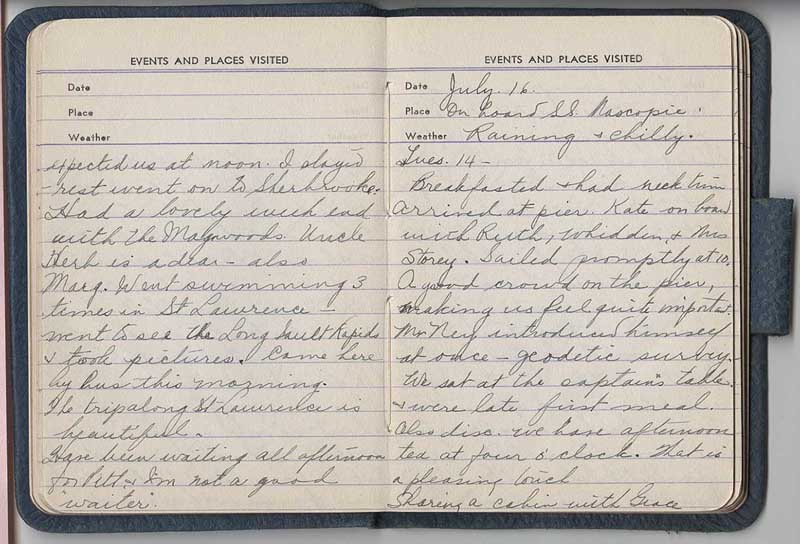 EVENTS AND PLACES VISITED
Date
Place
Weather
expected us at noon. I stayed
- rest went on to Sherbrooke.
Had a lovely week end
with the Maywoods. Uncle
Herb is a dear - also
Marg. Went swimming 3
times in St Lawrence -
went to see the Long Sault Rapids
& took pictures. Came here
by bus this morning.
The trip along St Lawrence is
beautiful.
Have been waiting all afternoon
for & I'm not a good
"waiter".
EVENTS AND PLACES VISITED
Date July. 16.
Place On board S.S. Nascopie.
Weather Raining & chilly.
Tues. 14 -
Breakfasted & had neck trim
Arrived at pier. Kate on board
with Ruth, Whidden, & Mrs
Storey. Sailed promptly at 10,
A good crowd on the pier,
making us feel quite important.
Mr Ney introduced himself
at once - geodetic survey.
We sat at the captain's table.
& were late first meal.
Also disc. we have afternoon
tea at four o'clock. That is
a pleasing touch
Sharing a cabin with Grace